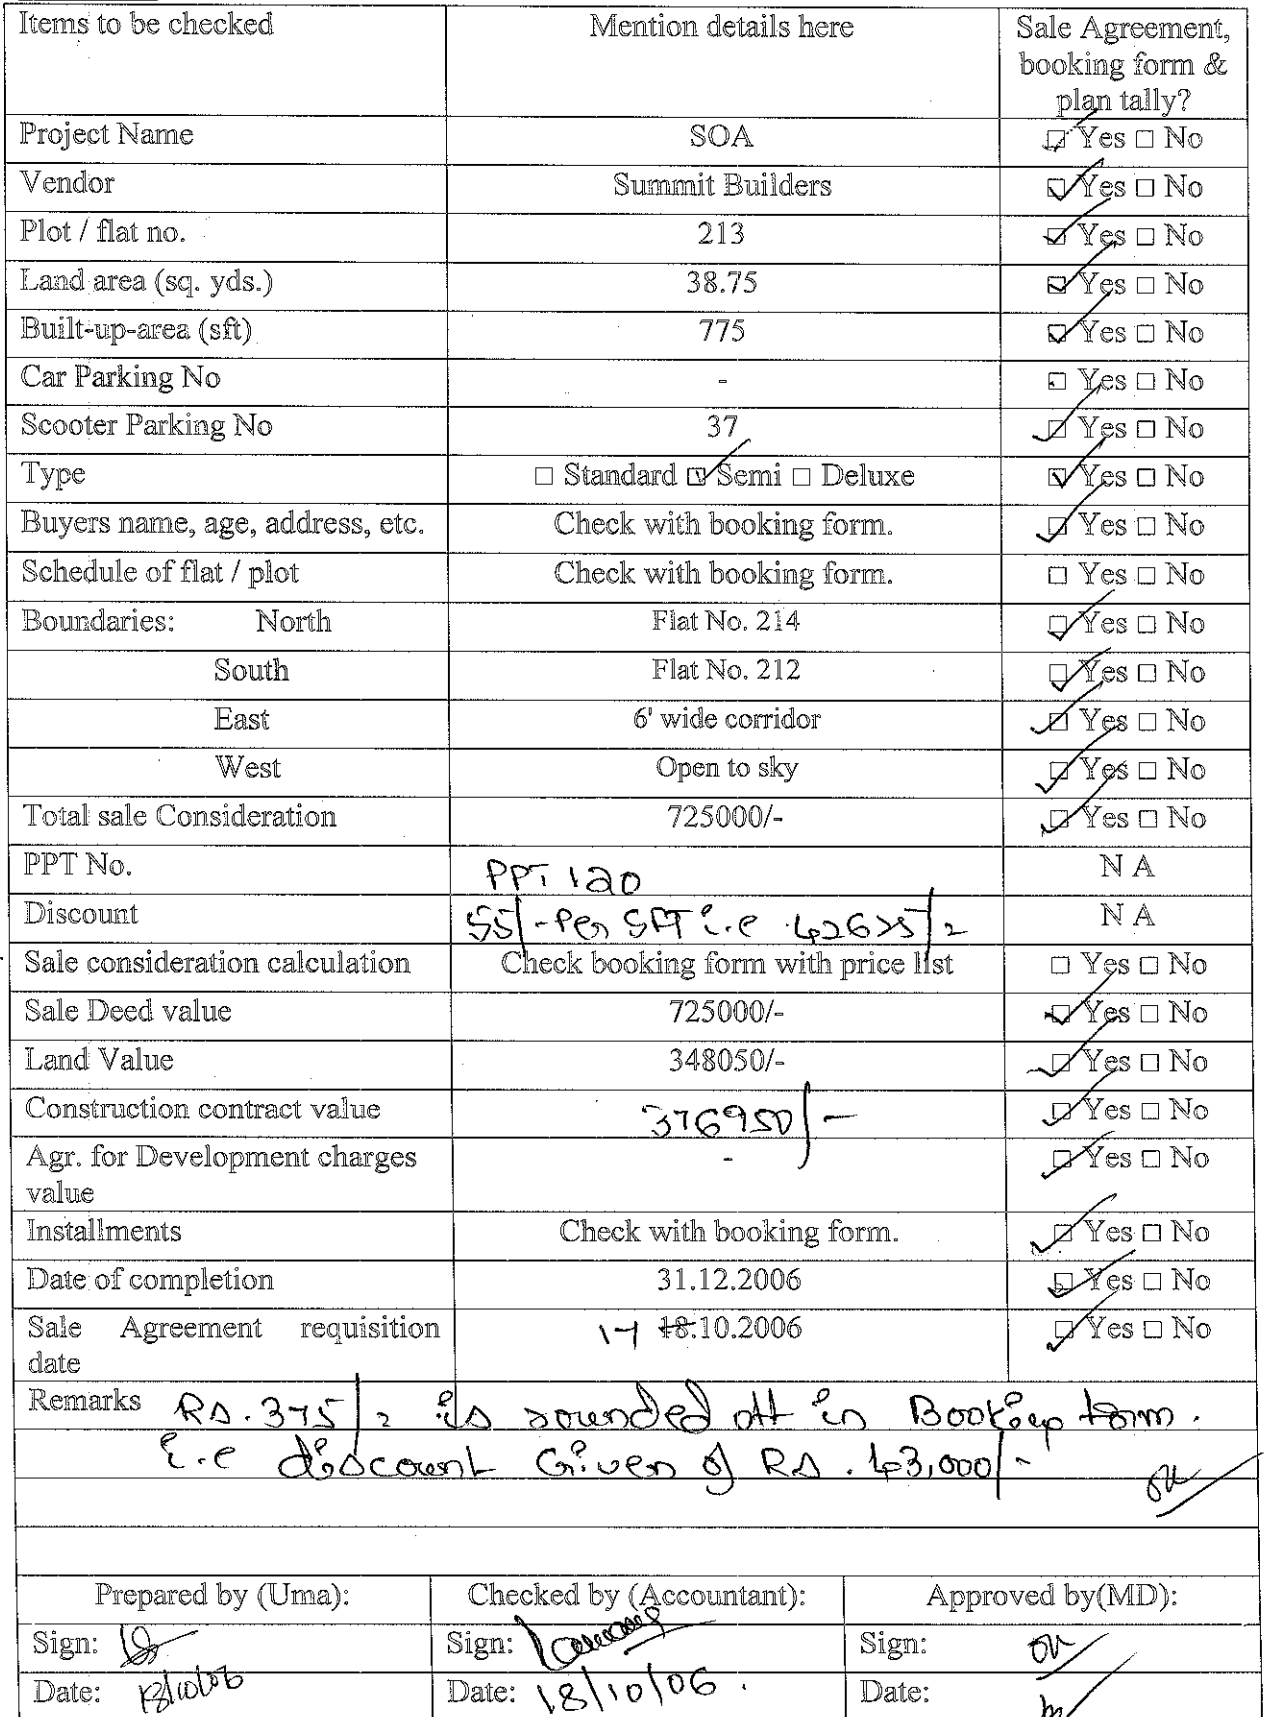 Items to be checked Mention details here Sale Agreement,
booking form &
plan tally?
Project Name SOA ☑ Yes □ No
Vendor Summit Builders ☑ Yes □ No
Plot / flat no. 213 ☑ Yes □ No
Land area (sq. yds.) 38.75 ☑ Yes □ No
Built-up-area (sft) 775 ☑ Yes □ No
Car Parking No - □ Yes □ No
Scooter Parking No 37 ☑ Yes □ No
Type □ Standard ☑ Semi □ Deluxe ☑ Yes □ No
Buyers name, age, address, etc. Check with booking form. ☑ Yes □ No
Schedule of flat / plot Check with booking form. □ Yes □ No
Boundaries: North Flat No. 214 ☑ Yes □ No
South Flat No. 212 ☑ Yes □ No
East 6' wide corridor ☑ Yes □ No
West Open to sky ☑ Yes □ No
Total sale Consideration 725000/- ☑ Yes □ No
PPT No. PPT 120 N A
Discount 55/- Per SFT i.e 42625/= N A
Sale consideration calculation Check booking form with price list □ Yes □ No
Sale Deed value 725000/- ☑ Yes □ No
Land Value 348050/- ☑ Yes □ No
Construction contract value 376950/- ☑ Yes □ No
Agr. for Development charges - ☑ Yes □ No
value
Installments Check with booking form. ☑ Yes □ No
Date of completion 31.12.2006 ☑ Yes □ No
Sale Agreement requisition 17 18.10.2006 ☑ Yes □ No
date
Remarks Rs. 375/= is rounded off in Booking form.
i.e discount Given of Rs. 43,000/-
Prepared by (Uma): Checked by (Accountant): Approved by(MD):
Sign: Sign: Sign:
Date: 18/10/06 Date: 18/10/06. Date: